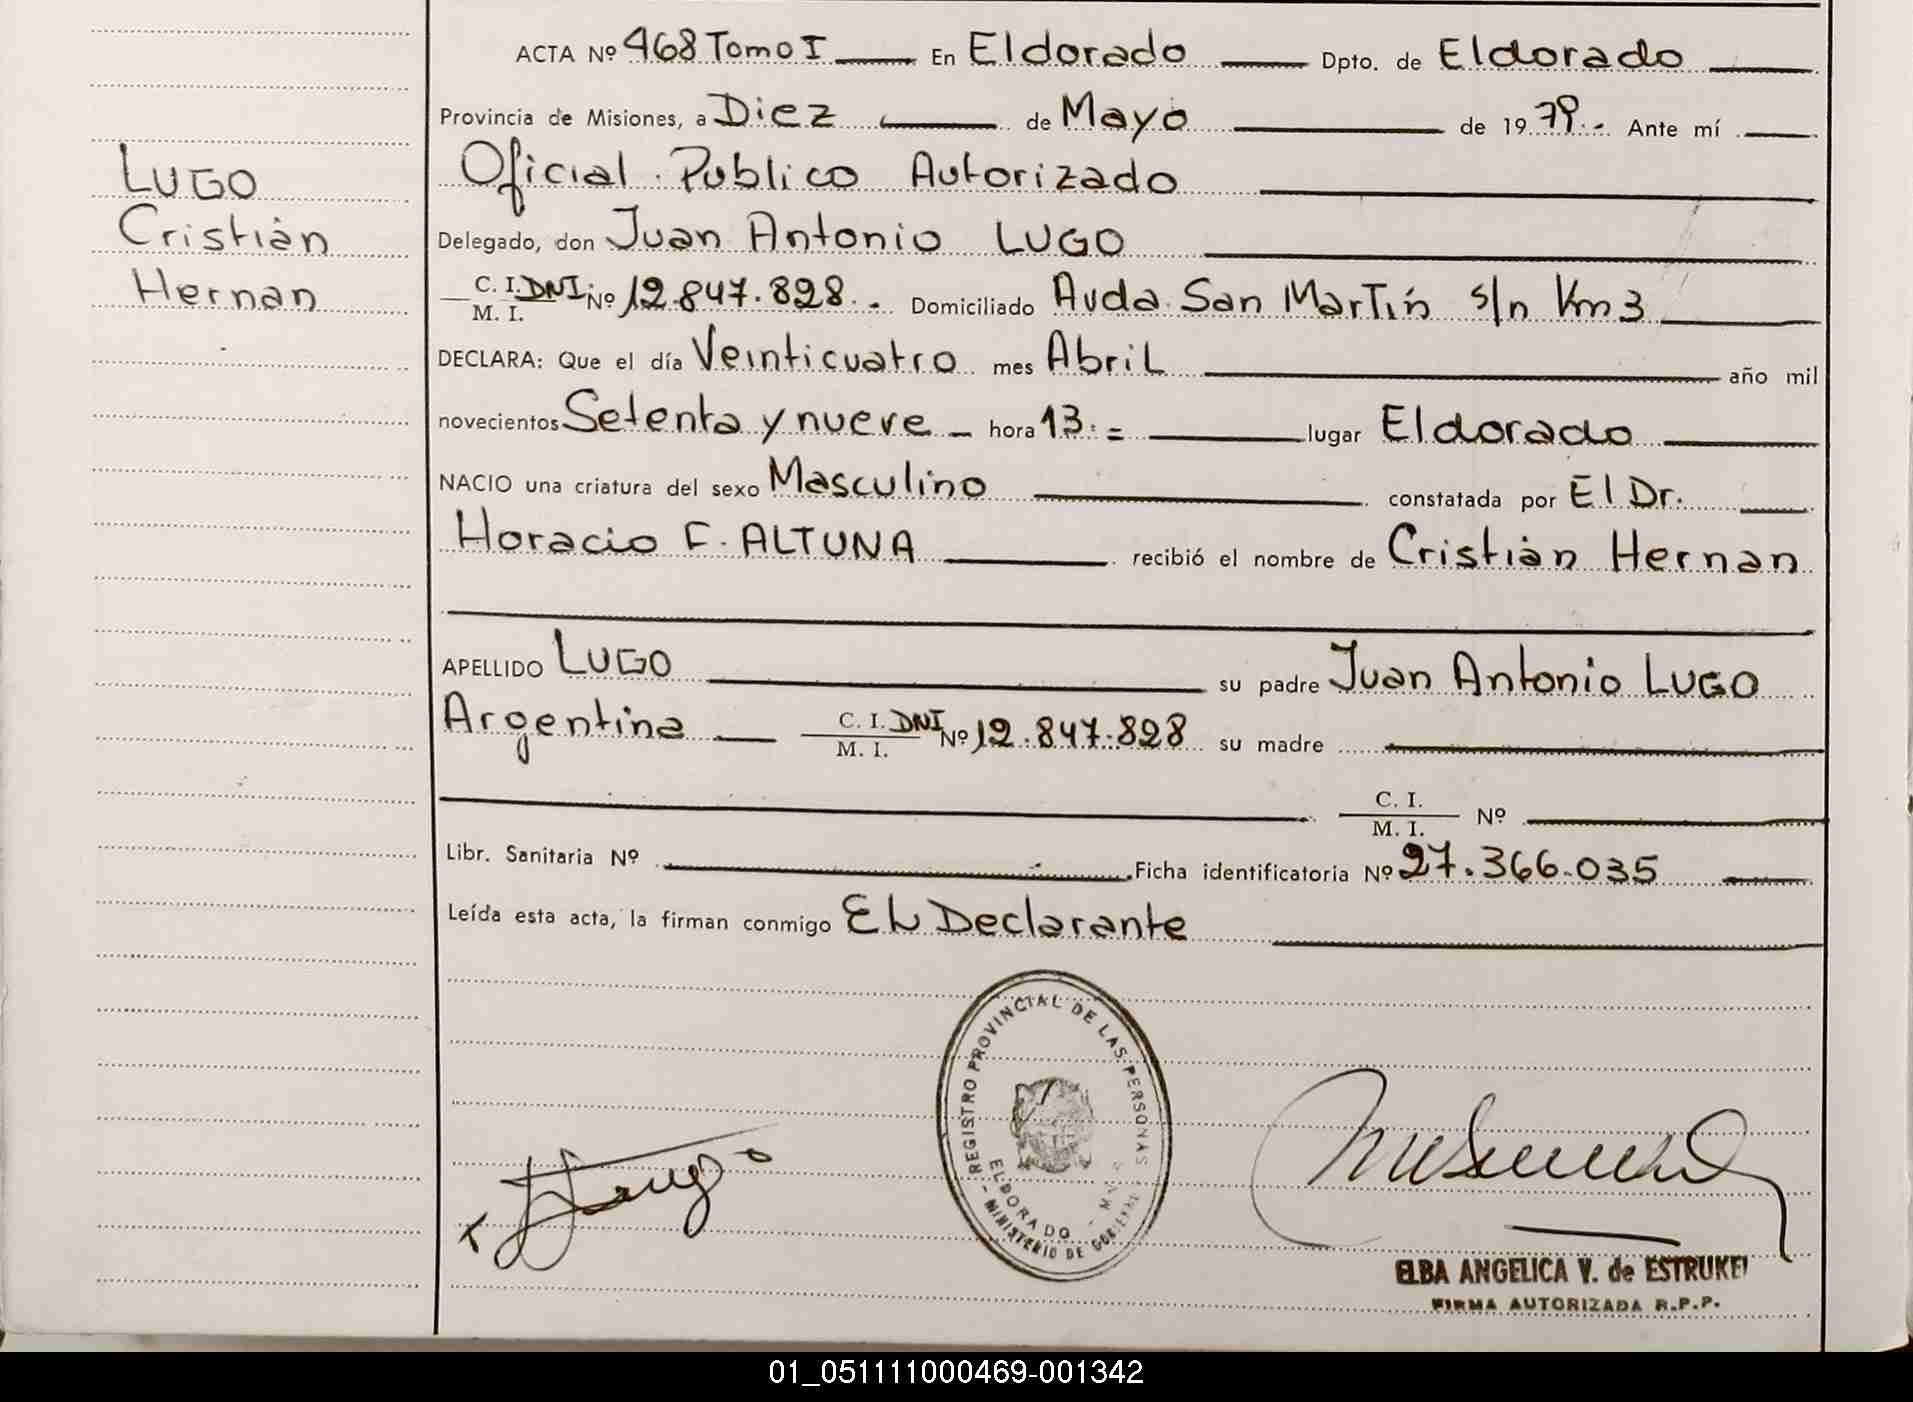 ACTA Nº 468 Tomo I En Eldorado Dpto. de Eldorado
Provincia de Misiones, a Diez de Mayo de 1979.- Ante mí
Oficial Publico Autorizado
Delegado, don Juan Antonio LUGO
C. I. DNI Nº 12.847.828.-
M. I.
Domiciliado Avda. San Martín s/n Km 3
DECLARA: Que el día Veinticuatro mes Abril año mil
novecientos Setenta y nueve - hora 13:= lugar Eldorado
NACIO una criatura del sexo Masculino constatada por El Dr.
Horacio F. ALTUNA recibió el nombre de Cristián Hernan
APELLIDO LUGO su padre Juan Antonio LUGO
Argentina C. I. DNI Nº 12.847.828 su madre
M. I.
C. I. Nº
M. I.
Libr. Sanitaria Nº Ficha identificatoria Nº 27.366.035
Leída esta acta, la firman conmigo El Declarante
LUGO
Cristián
Hernan
REGISTRO PROVINCIAL DE LAS PERSONAS
ELDORADO
- MINISTERIO DE
ELBA ANGELICA V. de
FIRMA AUTORIZADA R.P.P.
01_051111000469-001342